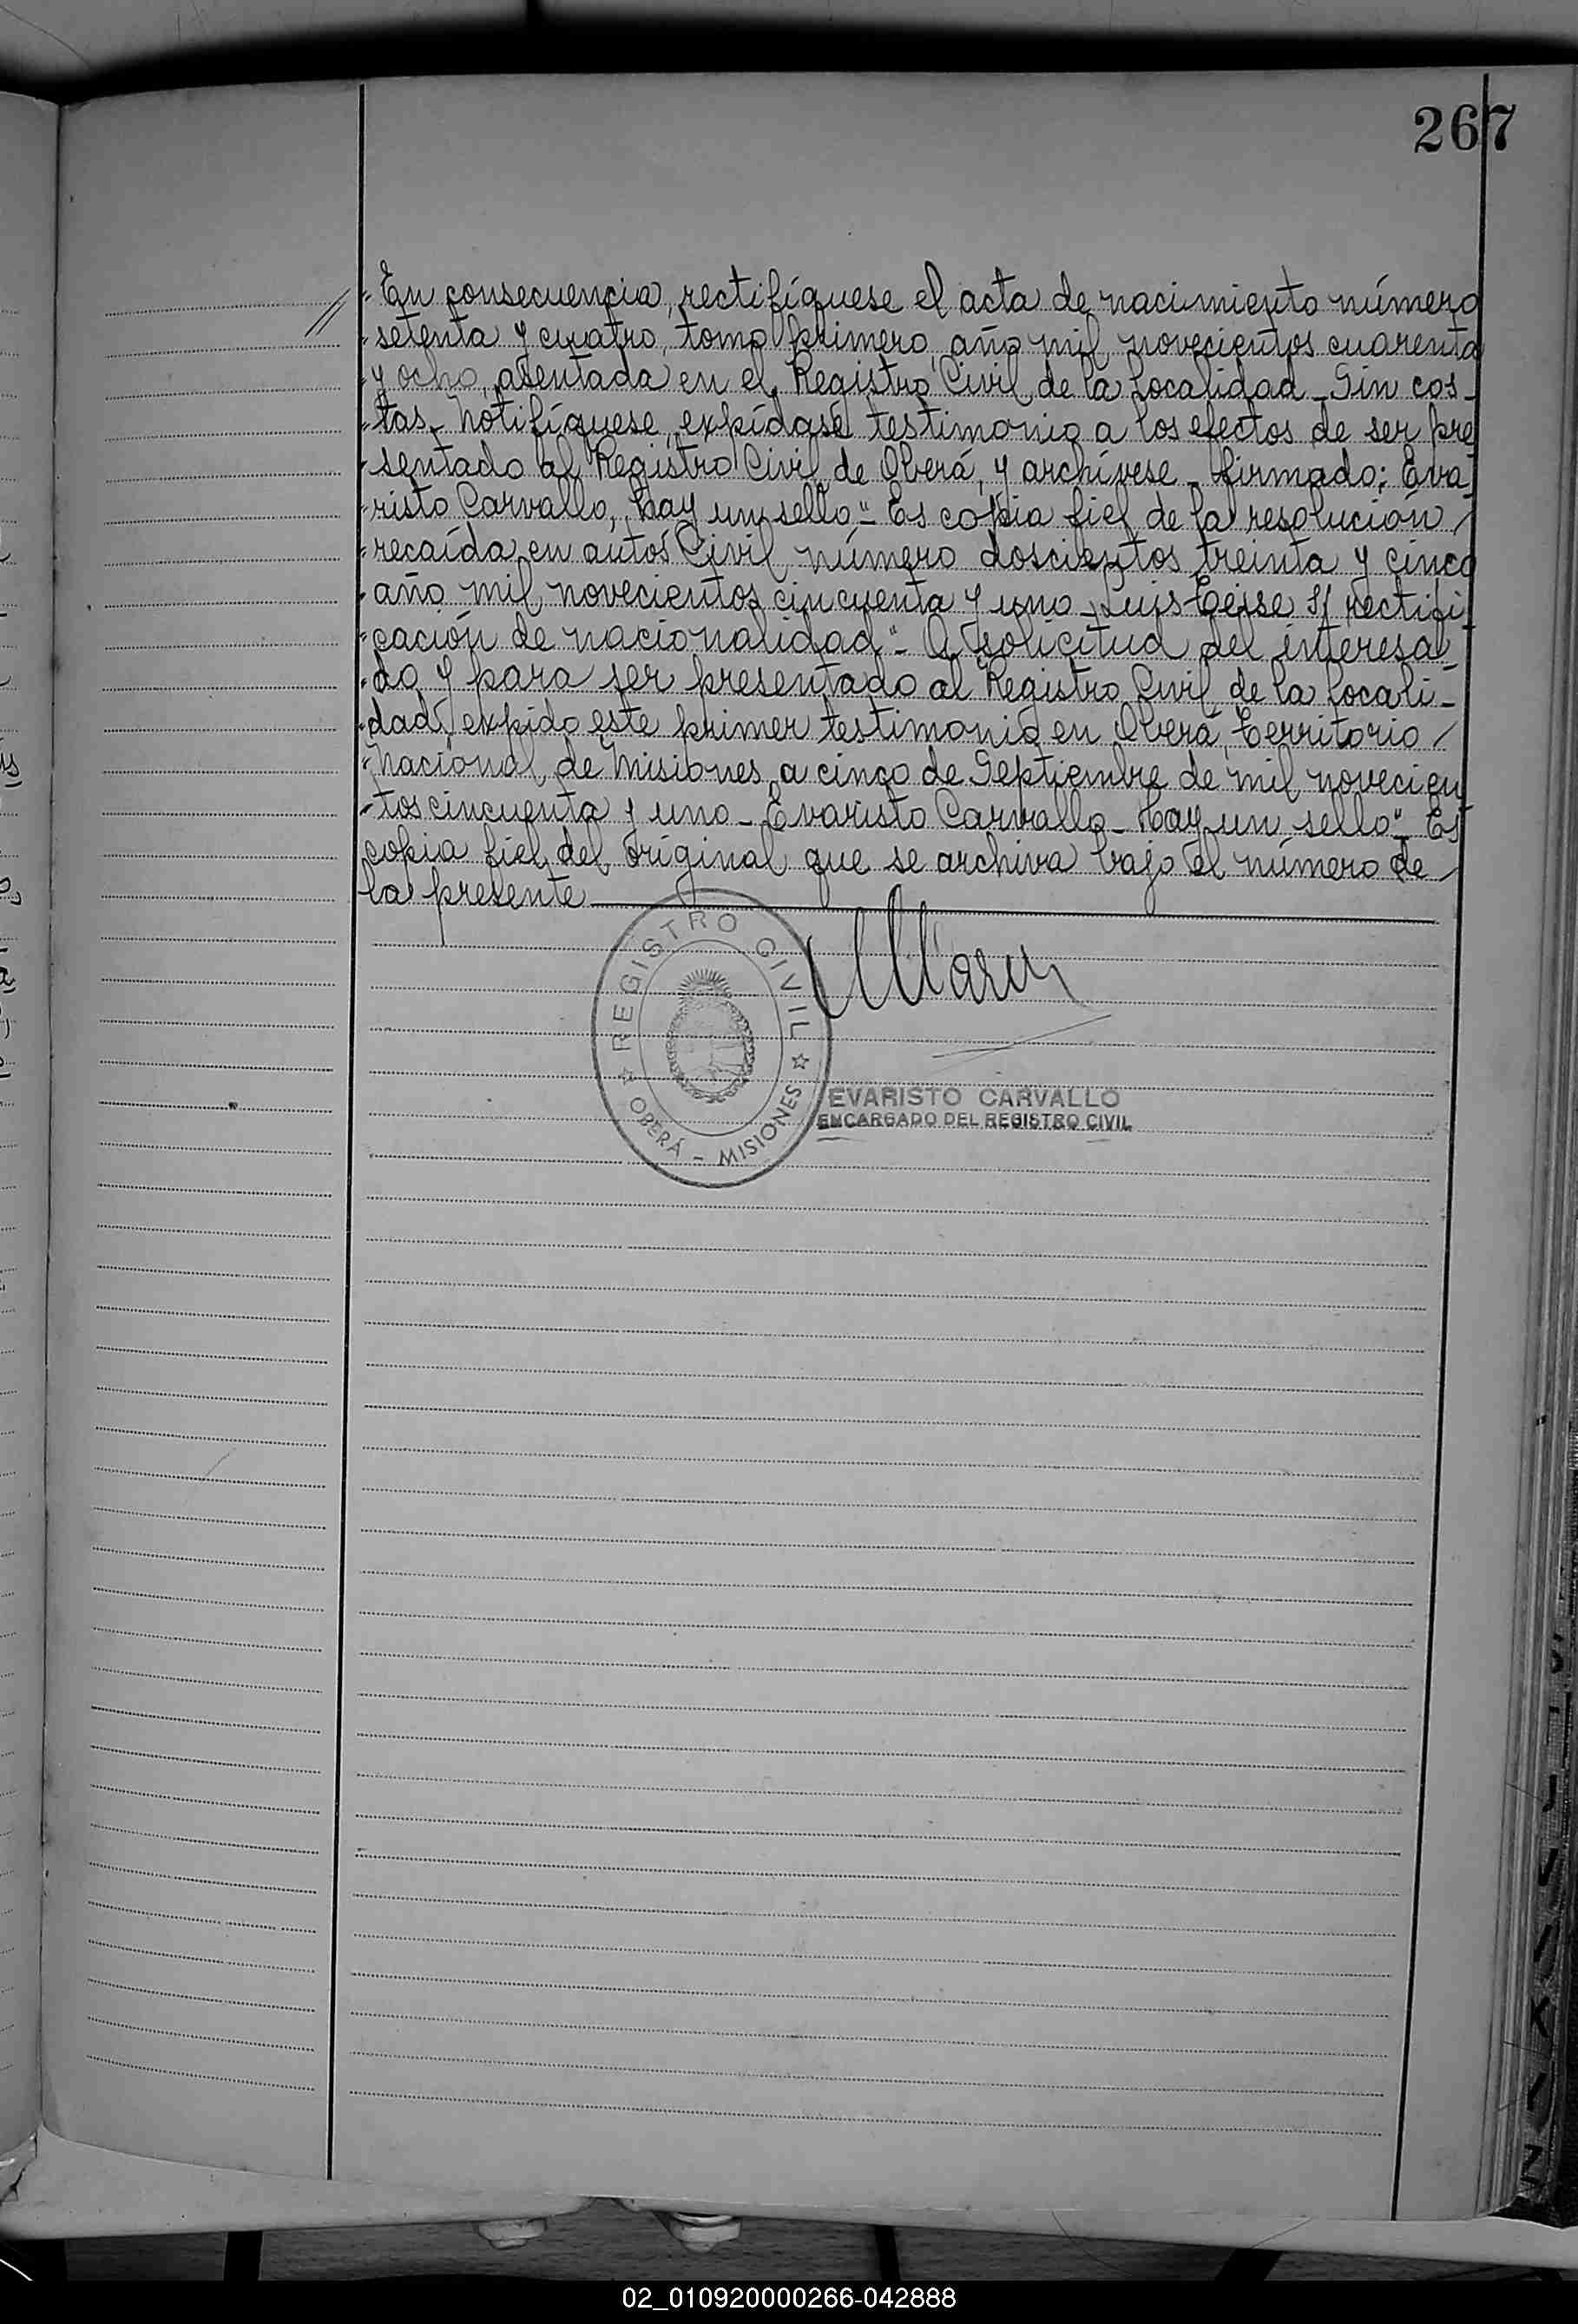 267
"En consecuencia, rectifíquese el acta de nacimiento número
"setenta y cuatro, tomo primero, año mil novecientos cuarenta
"y ocho, asentada en el Registro Civil de la localidad_ Sin cos_
"tas_ Notifíquese, expídase testimonio a los efectos de ser pre
"sentado al Registro Civil de Oberá, y archívese_ firmado: Eva_
"risto Carvallo, hay un sello"_ Es copia fiel de la resolución /
"recaída en autos Civil número doscientos treinta y cinco
"año mil novecientos cincuenta y uno_ Luis S/ rectifi_
"cación de nacionalidad"_ A solicitud del interesa_
"do y para ser presentado al Registro Civil de la locali_
"dad, expido este primer testimonio en Oberá, Territorio /
"Nacional de Misiones, a cinco de Septiembre de mil novecien
"tos cincuenta y uno_ Evaristo Carvallo_ Hay un sello"_ Es
copia fiel del original que se archiva bajo el número de /
la presente
REGISTRO CIVIL
OBERÁ - MISIONES
EVARISTO CARVALLO
ENCARGADO DEL REGISTRO CIVIL
02_010920000266-042888